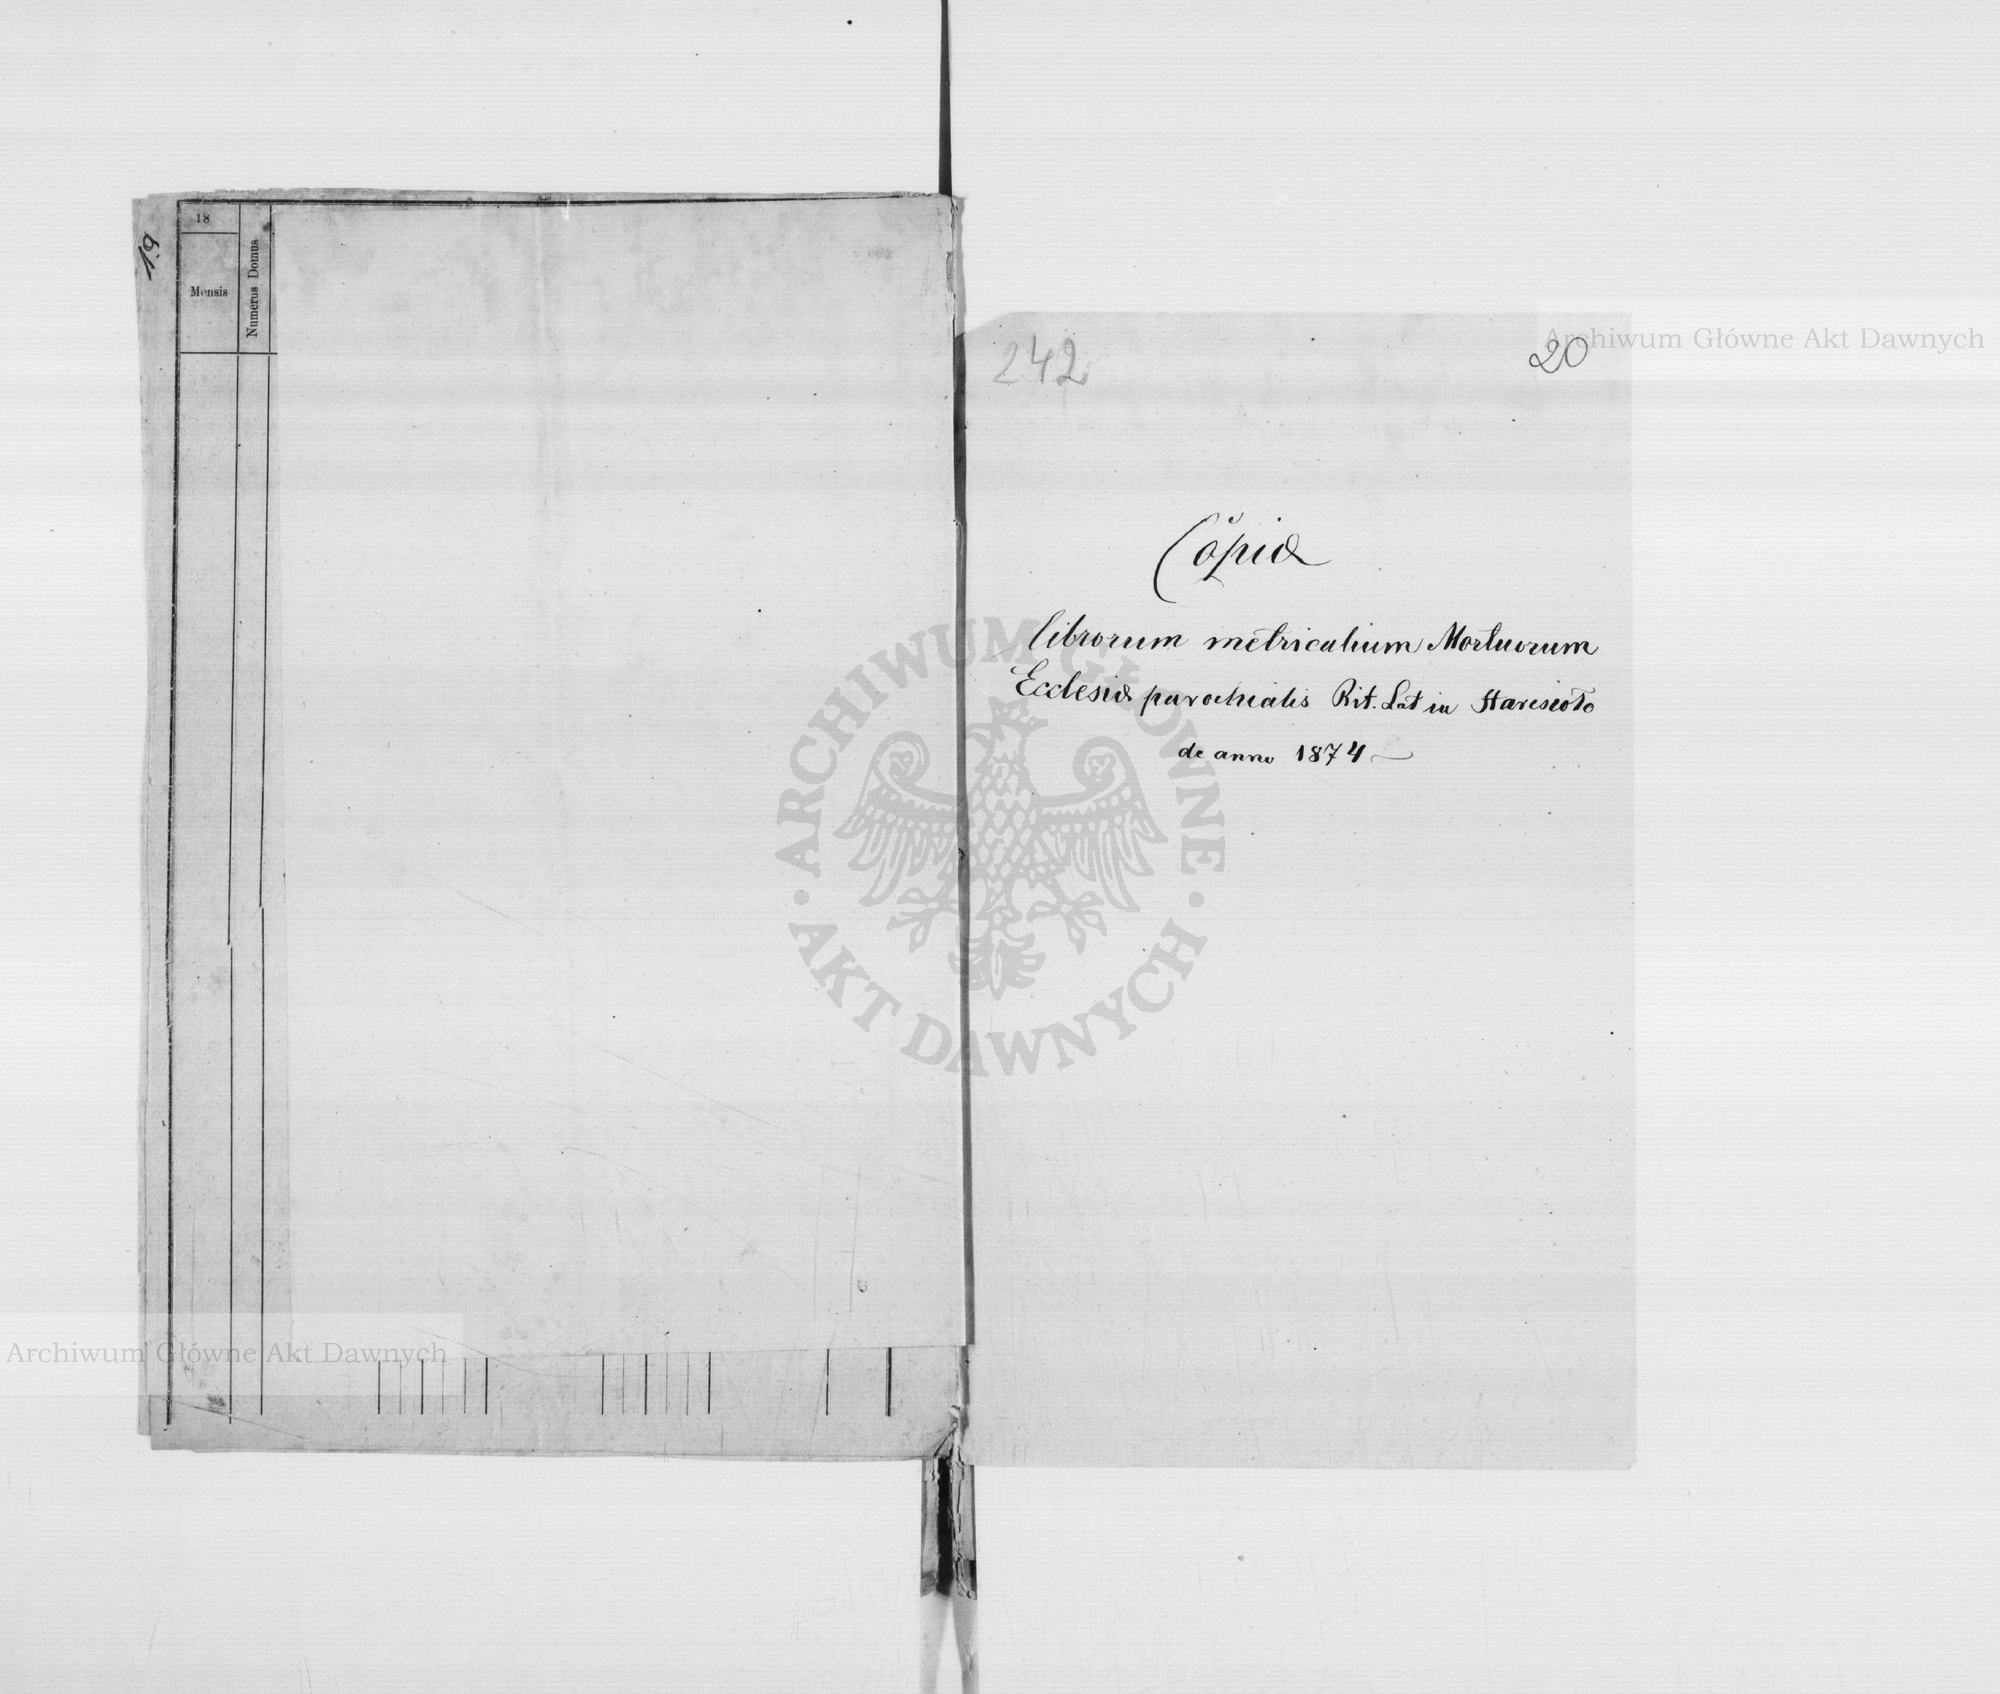 19
18
Mensis
Numerus Domus
242
20
Copia
librorum metricalium Mortuorum
Ecclesiæ parochialis Rit. Lat in
de anno 1874
Archiwum Główne Akt Dawnych
Archiwum Główne Akt Dawnych
ARCHIWUM GŁÓWNE
AKT DAWNYCH